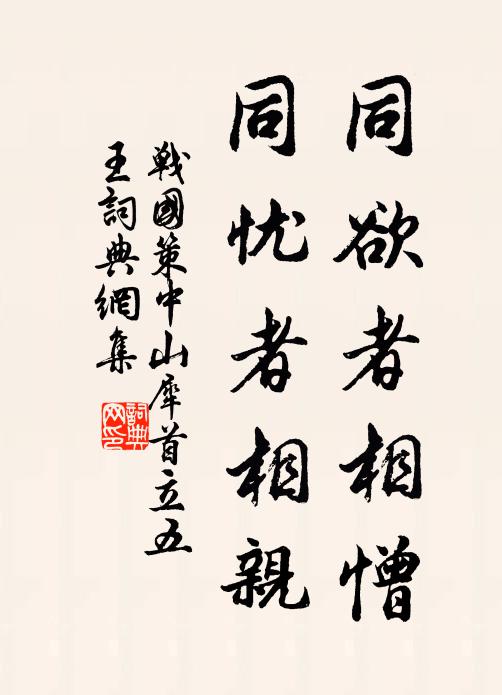 同欲者相憎
同忧者相親
戰國策中山犀首立五
王詞典網集
詞典
网印